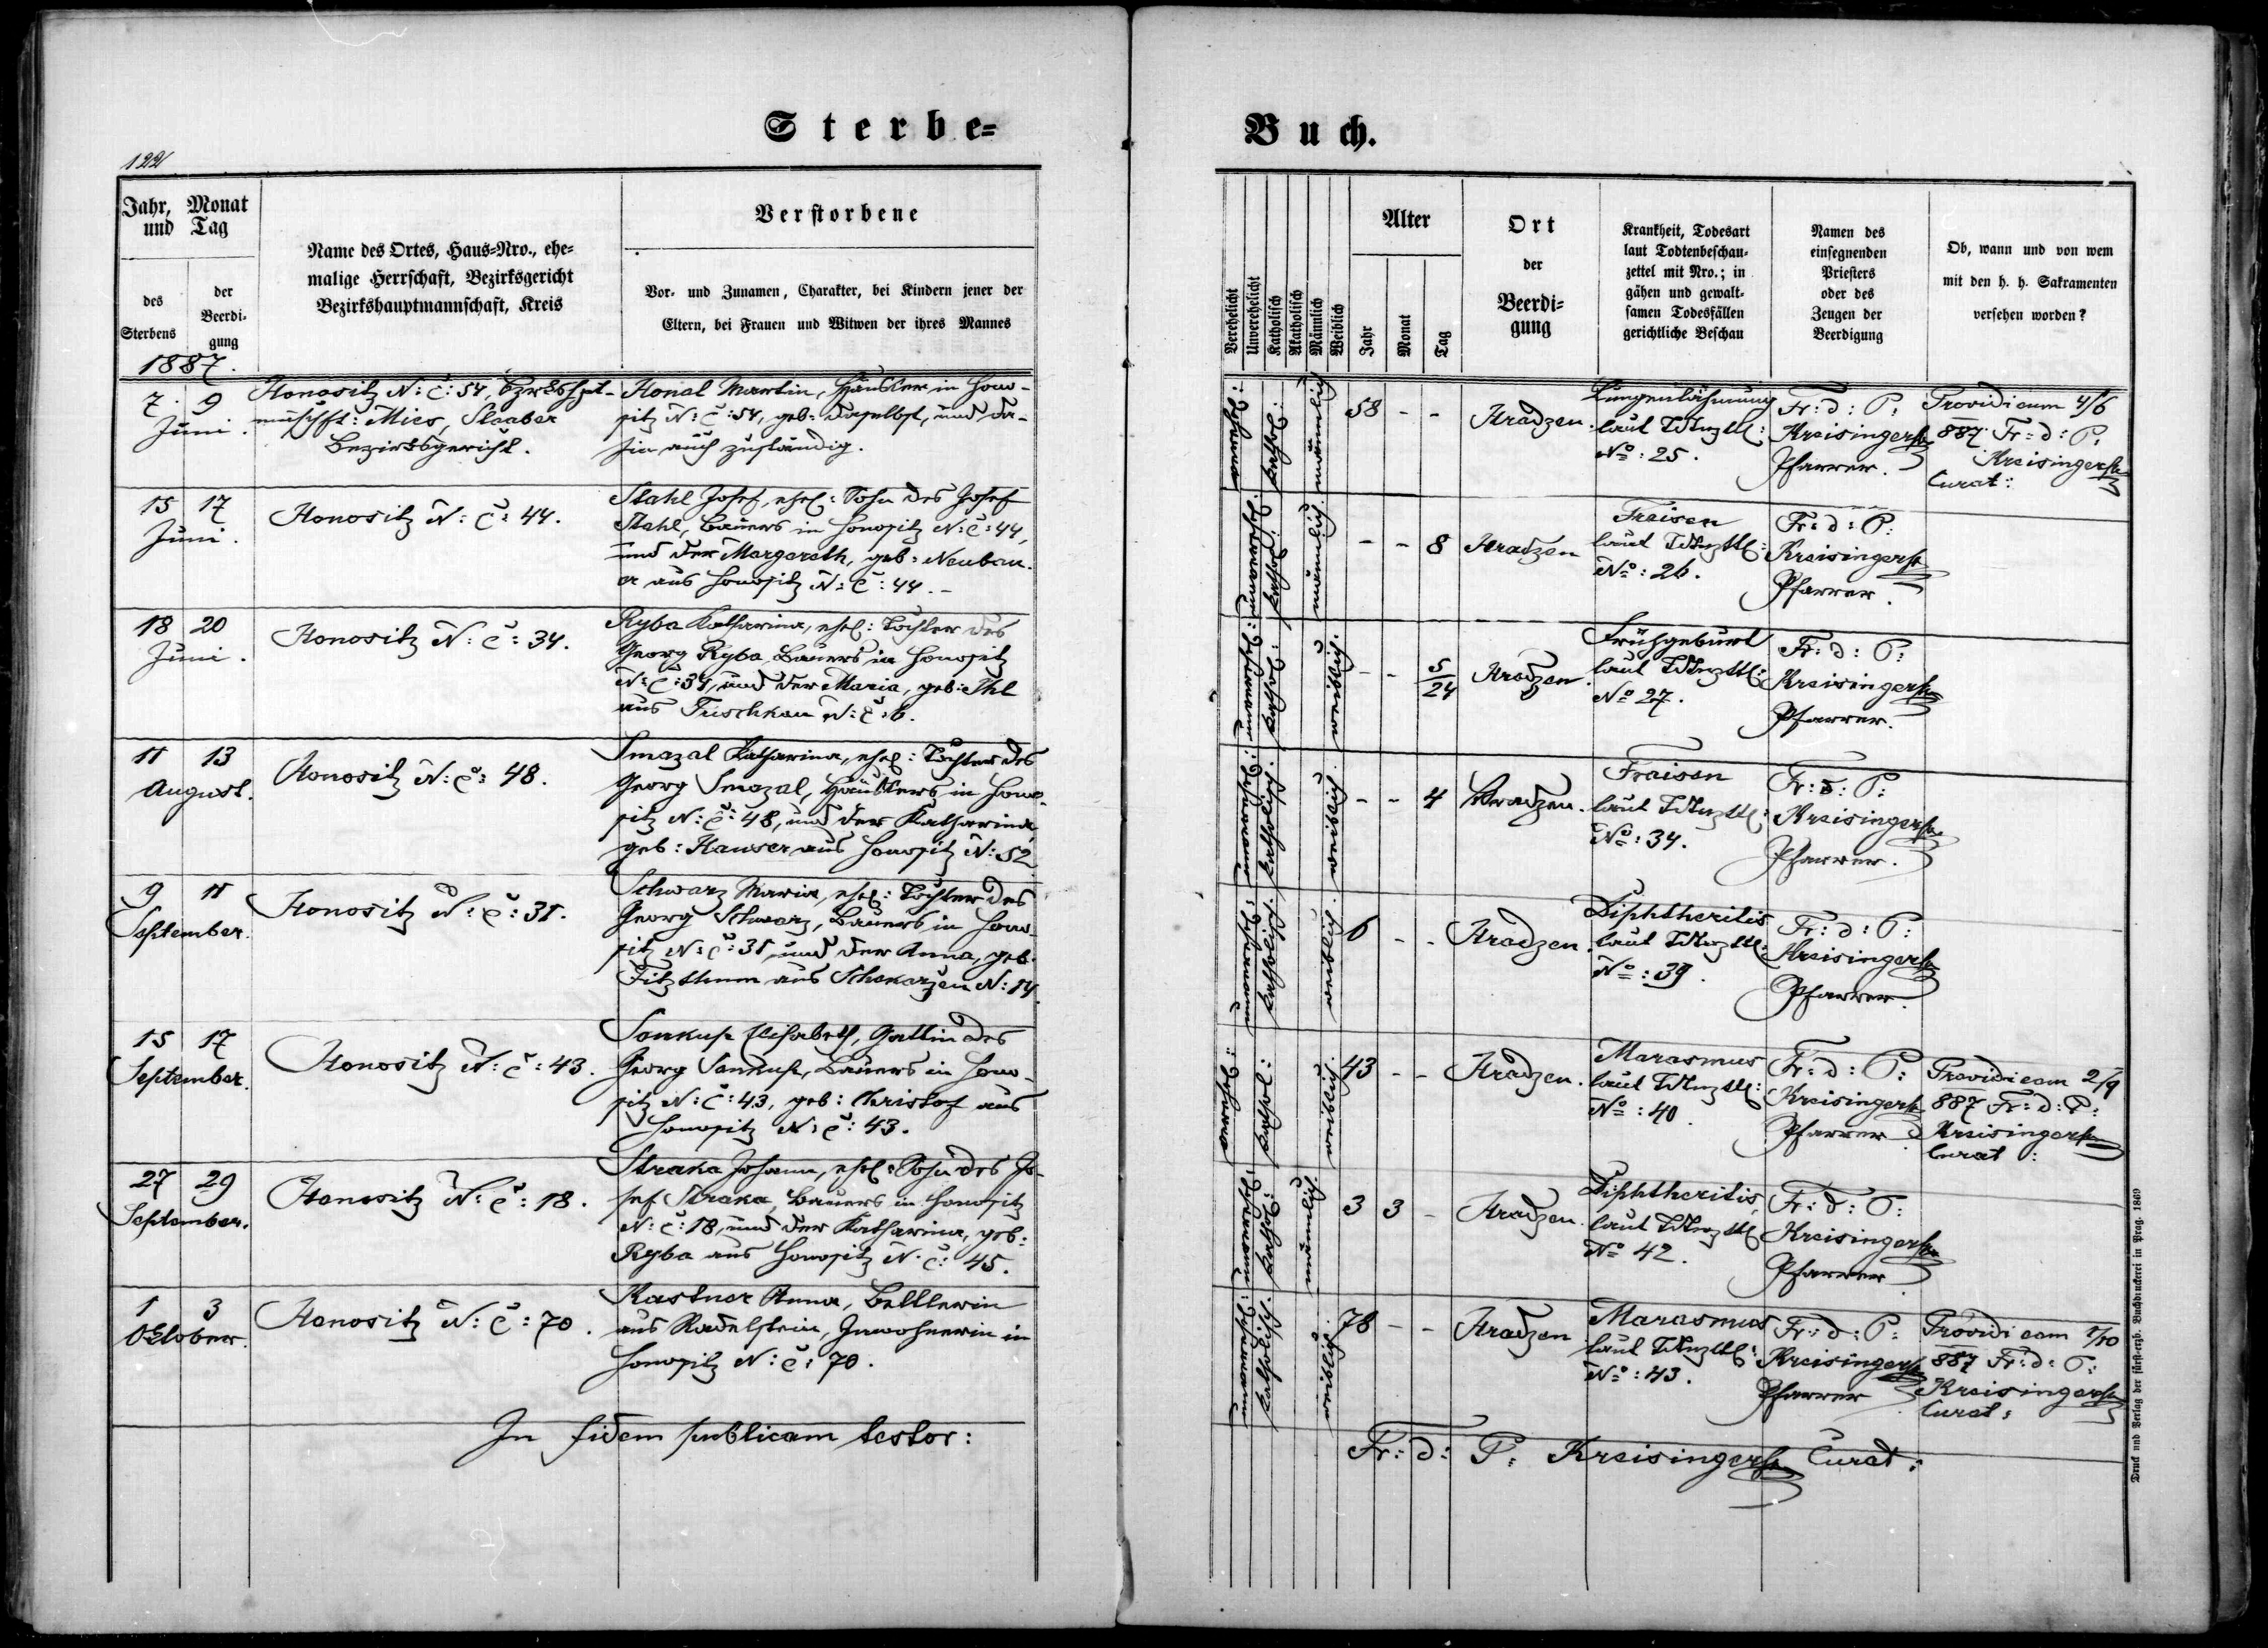 Sterbe=
Buch.
122
Jahr, Monat
und Tag
des
Sterbens
der
Beerdi-
gung
1887.
Name des Ortes, Haus=Nro., ehe=
malige Herrschaft, Bezirksgericht
Bezirkshauptmannschaft, Kreis
Verstorbene
Vor- und Zunamen, Charakter, bei Kindern jener der
Eltern, bei Frauen und Witwen der ihres Mannes
Verehelicht
Unverehelicht
Katholisch
Akatholisch
Männlich
Weiblich
Alter
Jahr
Monat
Tag
Ort
der
Beerdi-
gung
Krankheit, Todesart
laut Todtenbeschau-
zettel mit Nro.; in
gähen und gewalt-
samen Todesfällen
gerichtliche Beschau
Namen des
einsegnenden
Priesters
oder des
Zeugen der
Beerdigung
Ob, wann und von wem
mit den h. h. Sakramenten
versehen worden?
7. 9
Juni.
Honositz N: C: 54,
Mies, Staaber
Bezirksgericht.
Honal Martin, Häusler in Hono-
sitz N: C: 54, geb: daselbst, und da-
hin auch zuständig.
kathol:
männlich
58 - -
Hradzen.
Lungenlähmung
laut
No: 25.
Fr: d: P:
Kreisinger
Pfarrer.
Providi eum 4/6
887 Fr: d: P:
Kreisinger
Curat:
15 17
Juni.
Honositz N: C: 44.
Stahl Josef, ehel: Sohn des Josef
Stahl, Bauers in Honositz N: C: 44,
und der Margareth, geb: Neubau-
er aus Honositz N: C: 44.-
kathol:
männlich
- - 8
Hradzen
Fraisen
laut
No: 26.
Fr: d: P:
Kreisinger
Pfarrer.
18 20
Juni.
Honositz N: C: 34.
Ryba Katharina, ehel: Tochter des
Georg Ryba, Bauers in Honositz
N: C: 34, und der Maria, geb: Ihl
aus Tuschkau N: C: 6.
kathol:
weiblich.
- - 5/24
Hradzen.
Frühgeburt
laut
No 27.
Fr: d: P:
Kreisinger
Pfarrer.
11 13
August.
Honositz N: C: 48.
Smazal Katharina, ehel: Tochter des
Georg Smazal, Häuslers in Hono-
sitz N: C: 48, und der Katharina
geb: Hauser aus Honositz N: 52
katholisch.
weiblich.
- - 4
Hradzen.
Fraisen
laut
No: 34.
Fr: d: P:
Kreisinger
Pfarrer.
9 11
September.
Honositz N: C: 31.
Schwarz Maria, ehel: Tochter des
Georg Schwarz, Bauers in Hono-
sitz N: C: 31, und der Anna, geb.
Fitzthum aus Schekarzen N: 14.
katholisch.
weiblich.
6 - -
Hradzen.
Diphtheritis
laut
No: 39.
Fr: d: P:
Kreisinger
Pfarrer.
15 17
September.
Honositz N: C: 43.
Elisabeth, Gattin des
Georg Bauers in Hono-
sitz N: C: 43, geb: Christof aus
Honositz N: C: 43.
kathol:
weiblich.
43 - -
Hradzen.
Marasmus
laut
No: 40.
Fr: d: P:
Kreisinger
Pfarrer
Providi eam 2/9
887 Fr: d: P:
Kreisinger
Curat:
27 29
September.
Honositz N: C: 18.
Straka Johann, ehel: Sohn des Jo-
sef Straka, Bauers in Honositz
N: C: 18, und der Katharina, geb:
Ryba aus Honositz N. C: 45.
kathol:
männlich.
3 3 -
Hradzen.
Diphtheritis,
laut
No 42.
Fr: d: P:
Kreisinger
Pfarrer
1 3
Oktober.
Honositz N: C: 70.
Kastner Anna, Bettlerin
aus Radelstein, Inwohnerin in
Honositz N: C: 70.
katholisch.
weiblich.
78 - -
Hradzen
Marasmus
laut
No: 43.
Fr: d: P:
Kreisinger
Pfarrer
Providi eam 1/10
887 Fr: d: P:
Kreisinger
Curat:
In fidem publicam testor:
Fr: d: P: Kreisinger Curat:
Druck und Verlag der fürst-erzb. Buchdruckerei in Prag. 1869